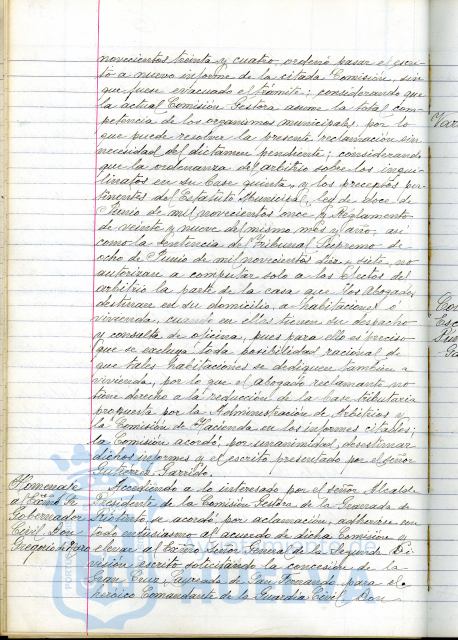 novecientos treinta y cuatro, ordenó pasar el escri-
to a nuevo informe de la citada Comisión, sin
que fuese evacuado el trámite; considerando que
la actual Comisión Gestora asume la total com-
petencia de los organismos municipales por lo
que puede resolver la presente reclamación sin
necesidad del dictamen pendiente; considerando
que la ordenanza del arbitrio sobre los inqui-
linatos en su base quinta, y los preceptos per-
tinentes del Estatuto Municipal, ley de doce de
Junio de mil novecientos once y Reglamento
de veinte y nueve del mismo mes y año, así
como la sentencia de Tribunal Supremo de
ocho de Junio de mil novecientos diez y siete, no
autorizan a computar solo a los efectos del
arbitrio la parte de la casa que los abogados
destinan en su domicilio, a habitaciones o
vivienda, cuando en ellas tienen su despacho
y consulta de oficina, pues para ello es preciso
que se excluya toda posibilidad racional de
que tales habitaciones se dediquen también a
vivienda, por lo que el abogado reclamante no
tiene derecho a la reducción de la base tributaria
propuesta por la Administración de Arbitrios y
la Comisión de Hacienda en los informes citables;
la Comisión acordó por unanimidad, desestimar
dichos informes y el escrito presentado por el señor
Gutiérrez Garrido.
Homenaje
al Excmo. Sr.
Gobernador
Civil Don
Gregorio de Haro
Accediendo a lo interesado por el señor Alcalde
Presidente de la Comisión Gestora de la Granada de
Riotinto, se acordó por aclamación, adherirse con
todo entusiasmo al acuerdo de dicha Comisión y
elevar al Excmo Señor General de la Segunda Di-
visión escrito solicitando la concesión de la
Gran Cruz Laureada de San Fernando para el
heróico Comandante de la Guardia Civil Don